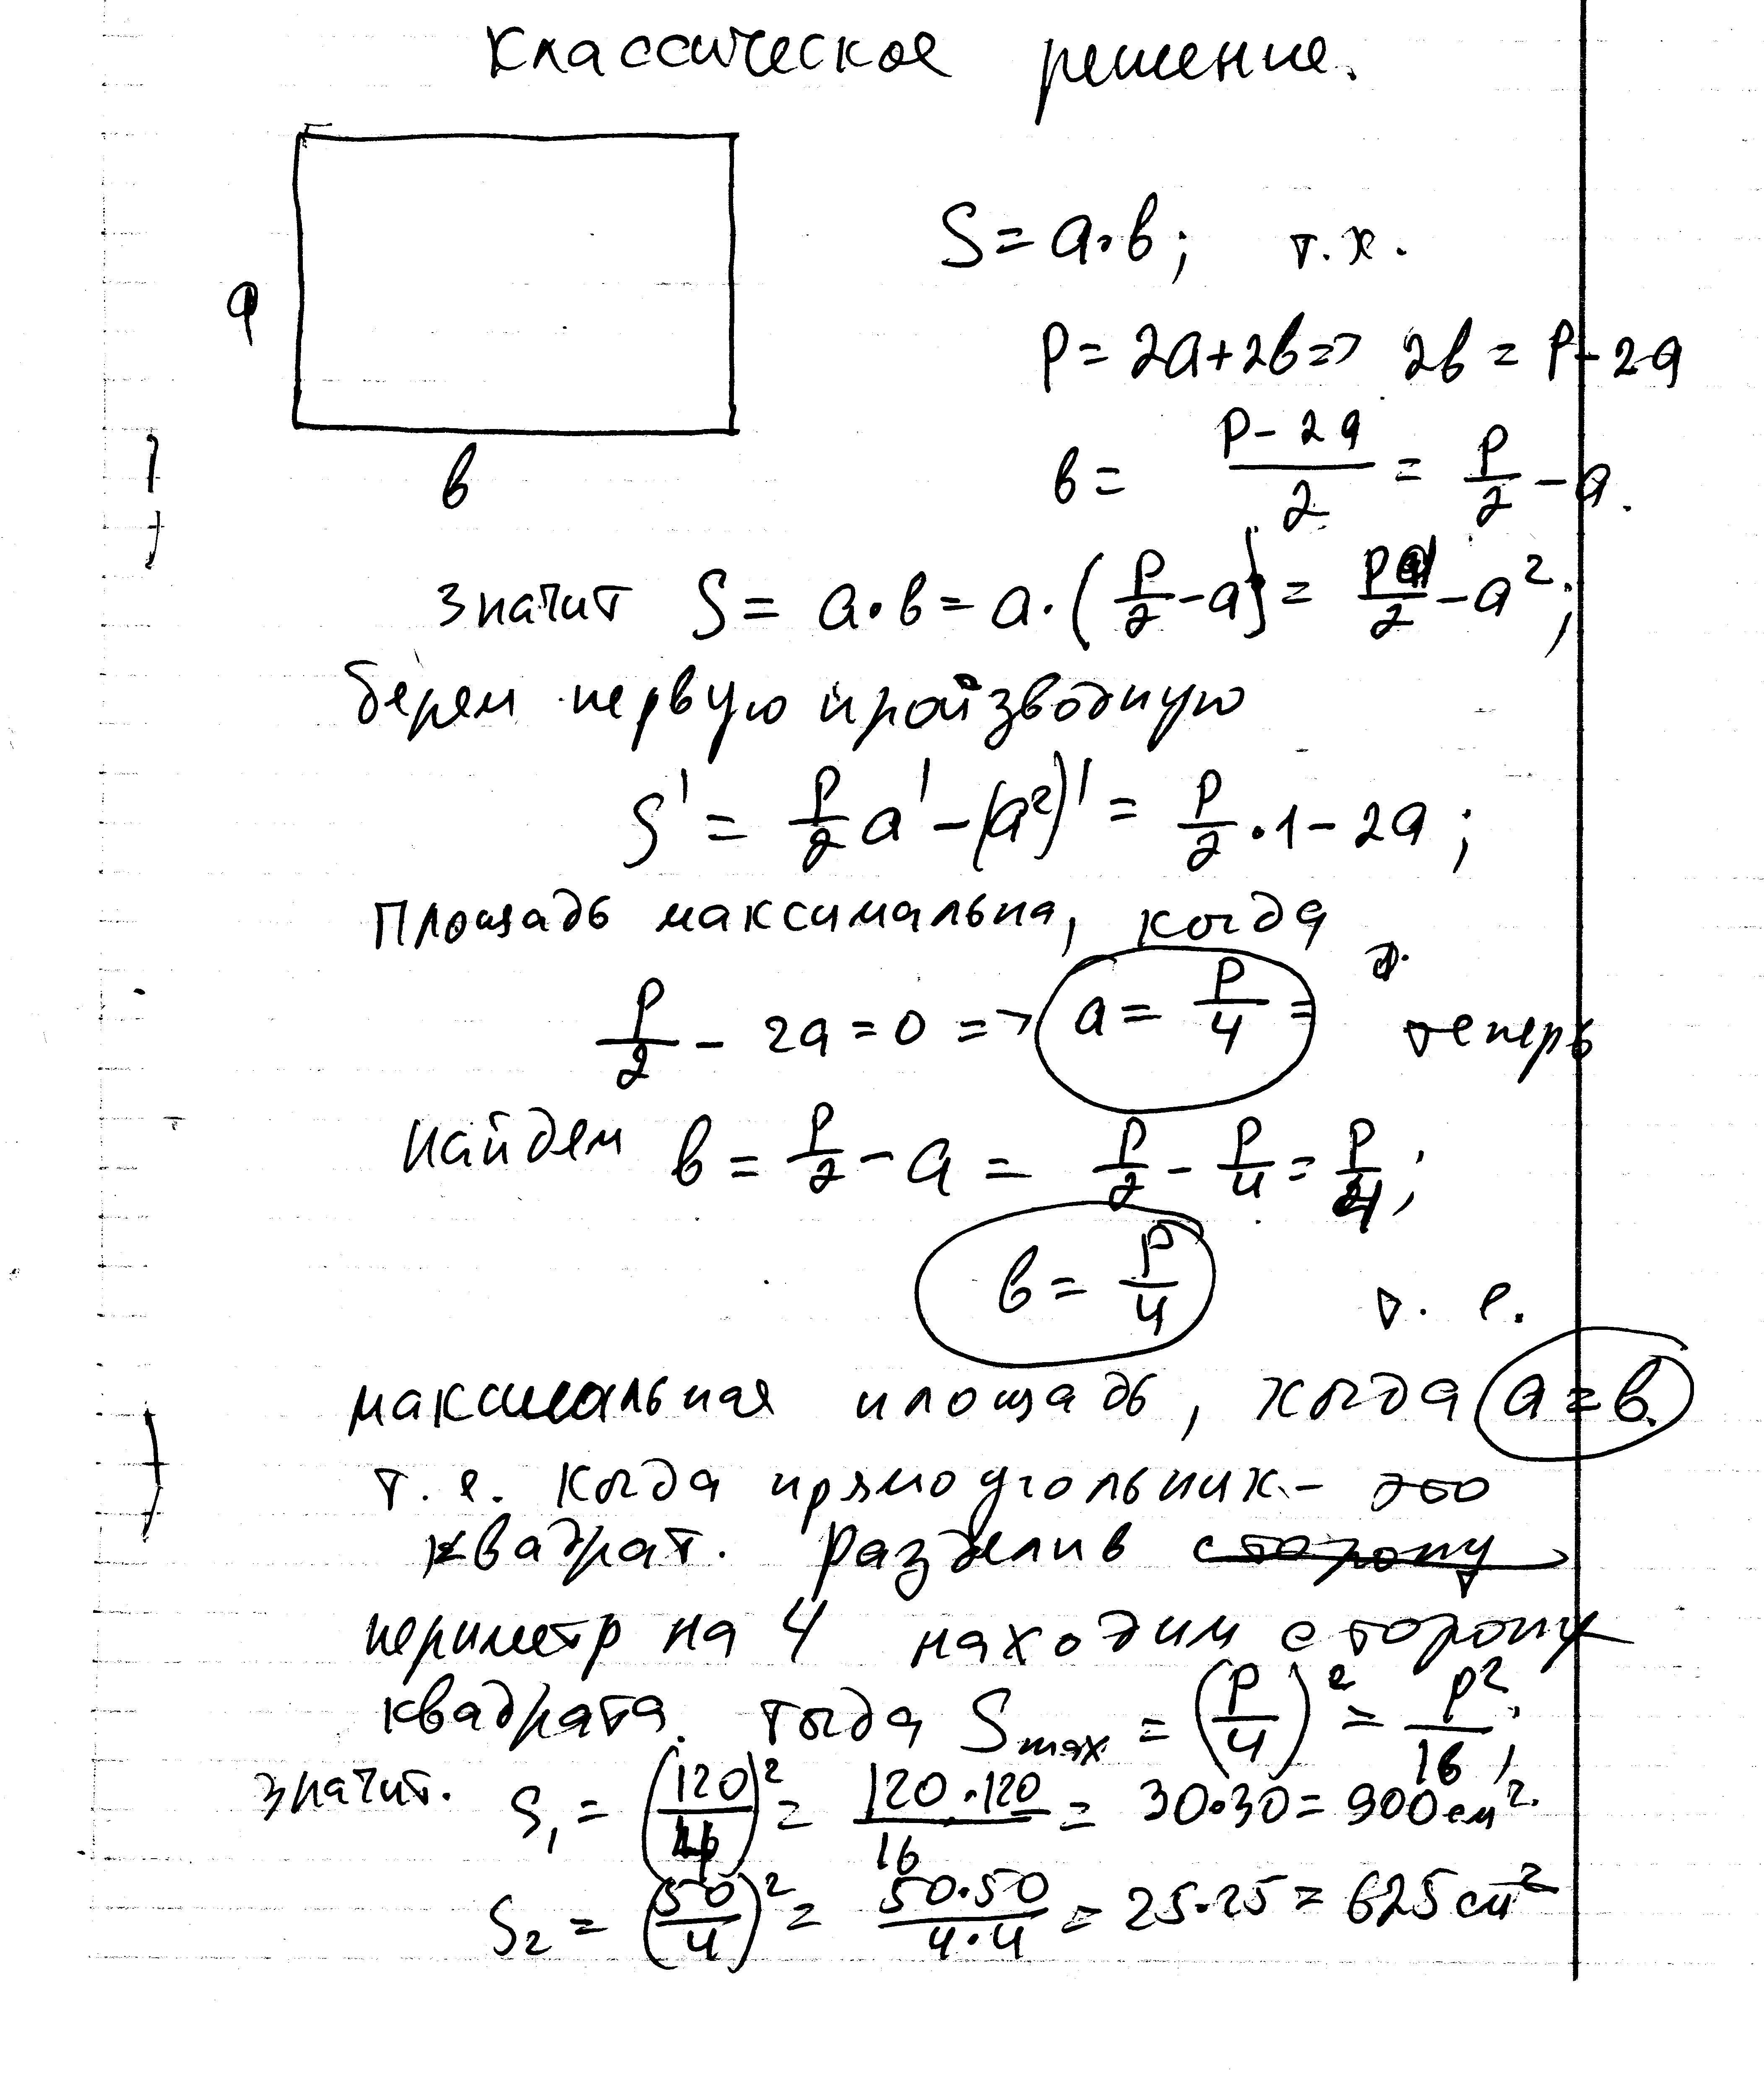 Классическое решение.
S = a·b; т.к.
a
P = 2a+2b => 2b = P-2a
b
b = \frac{P-2a}{2} = \frac{P}{2} - a.
значит S = a·b = a·(\frac{P}{2}-a) = \frac{Pa}{2} - a²;
берем первую производную
S' = \frac{P}{2}a' - (a²)' = \frac{P}{2}·1 - 2a;
Площадь максимальна, когда
\frac{P}{2} - 2a = 0 => a = \frac{P}{4} = теперь
найдем b = \frac{P}{2} - a = \frac{P}{2} - \frac{P}{4} = \frac{P}{4};
b = \frac{P}{4} т. е.
максимальная площадь, когда a = b.
т.е. когда прямоугольник - это
квадрат. разделив сторону
периметр на 4 находим сторону
квадрата. тогда Smax = (\frac{P}{4})² = \frac{P²}{16};
значит. S₁ = (\frac{120}{4})² = \frac{120·120}{16} = 30·30 = 900 см².
S₂ = (\frac{50}{4})² = \frac{50·50}{4·4} = 25·25 = 625 см²